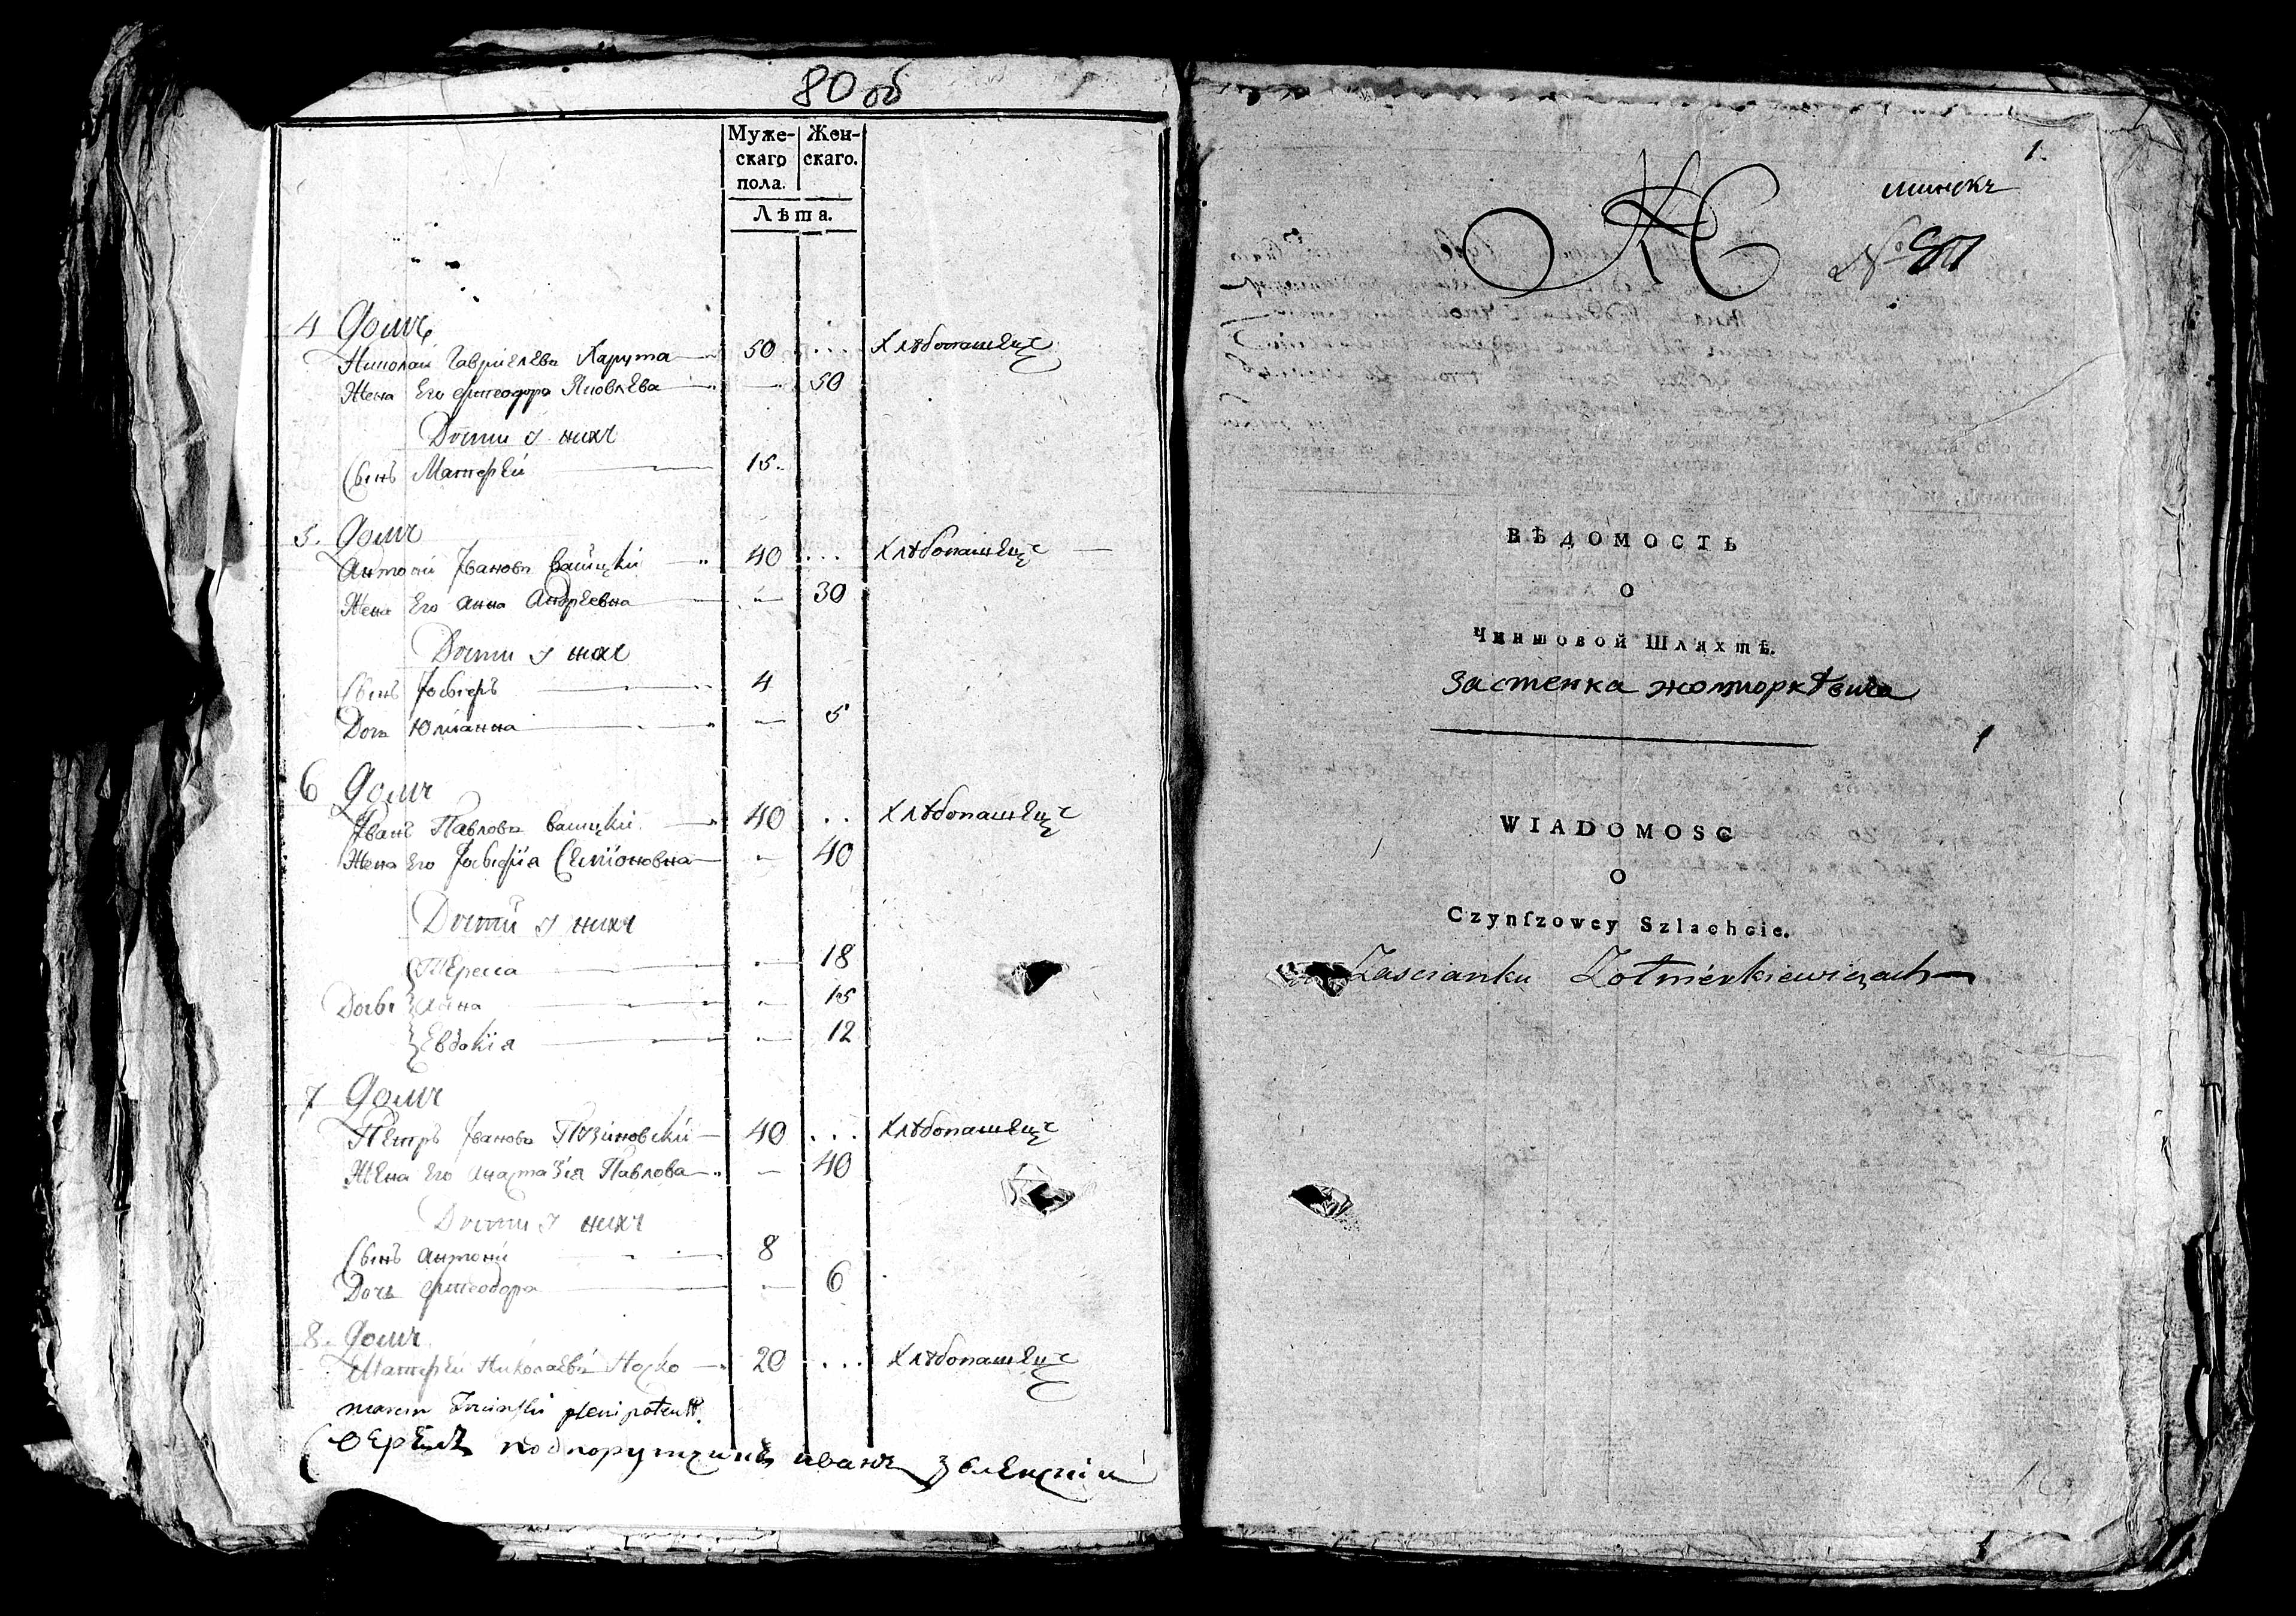 80 об
Муже- Жен-
скаго скаго.
пола.
Лѣта.
4 Домъ
Николай Гавриелевъ Карута 50 ... Хлѣбопашецъ
Жена Его Фтеодора Яковлева — 50
Дѣти у нихъ
Сынъ Матфей 15.
5. Домъ
Антоний Ивановъ 40 ... Хлѣбопашецъ —
Жена Его Анна Андреевна — 30
Дѣти у нихъ
Сынъ Іосыфъ 4
Дочь Юлiанна — 5
6 Домъ
Иванъ Павловъ 40 .. Хлѣбопашецъ
Жена Его Іосыфiа Семiоновна — 40
Дѣти у нихъ
Тересса — 18
Дочы Анна — 15
Евдокiя — 12
7 Домъ
Петръ Ивановъ 40 ... Хлѣбопашецъ
Жена Его Анастазiя Павлова — 40
Дѣти у нихъ
Сынъ Антони 8
Дочь Фтеодора — 6
8. Домъ
Матфей Николаевъ 20 .... Хлѣбопашецъ
plenipotent.
подпорутчикъ иванъ
1.
минскъ
№
ВѢДОМОСТЬ
О
Чиншовой Шляхтѣ.
Застенка
WIADOMOSC
O
Czynſzowey Szlachcie.
Zascianku Zołnierkiewiczach